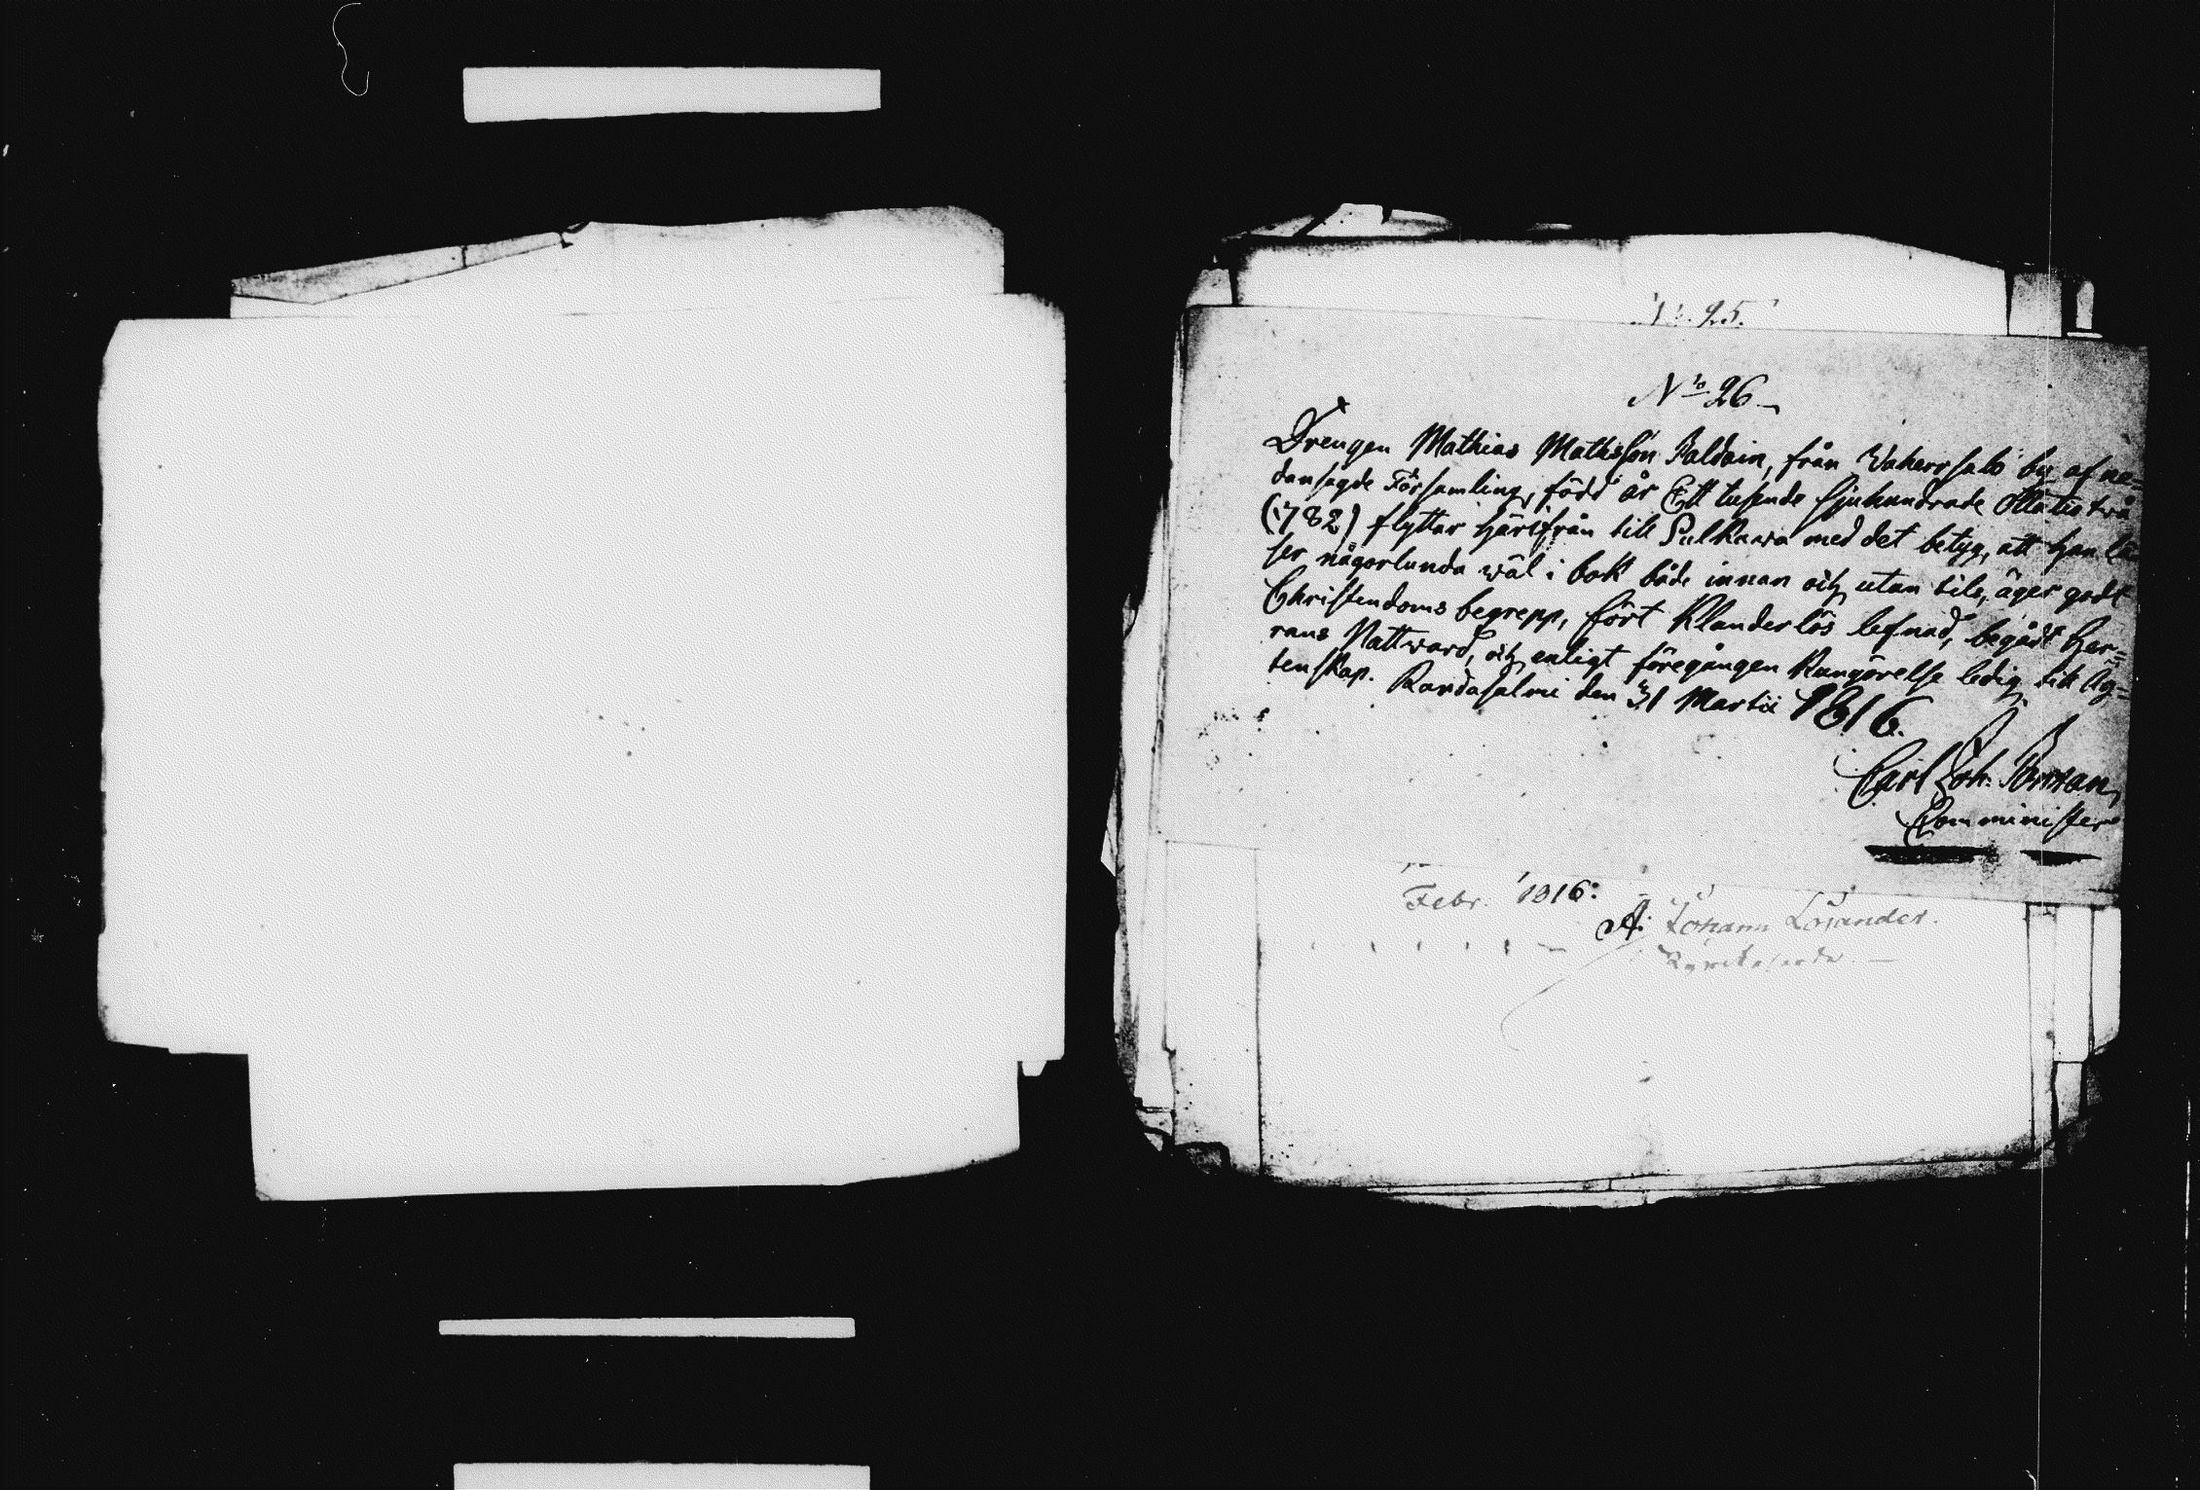 No 25.
No 26
Drengen Mathias Mathsson Paldain, från Wakersalo by af ne=
dansagde Församling, född år Ett tusende sjuhundrade Ottatio två
(1782) flyttar härifrån till Sulkawa med det betyg, att han lä
ser någorlunda wäl i bok både innan och utan till, äger godt
Christendoms begrepp, fört klanderlös lefnad, begådt Her=
rans Nattward, och enligt föregången Kungörelse ledig till Äg=
tenskap. Randasalmi den 31 Martii 1816.
Carl Joh.
Comminister
Febr. 1816:
A: Johann